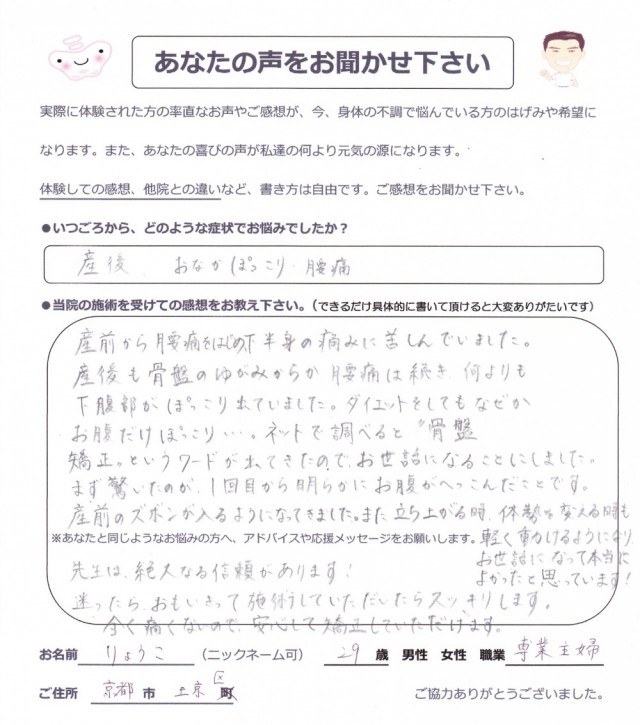 あなたの声をお聞かせ下さい
実際に体験された方の率直なお声やご感想が、今、身体の不調で悩んでいる方のはげみや希望に
なります。また、あなたの喜びの声が私達の何より元気の源になります。
体験しての感想、他院との違いなど、書き方は自由です。ご感想をお聞かせ下さい。
●いつごろから、どのような症状でお悩みでしたか？
産後、おなかぽっこり・腰痛
●当院の施術を受けての感想をお教え下さい。（できるだけ具体的に書いて頂けると大変ありがたいです）
産前から腰痛をはじめ、下半身の痛みに苦しんでいました。
産後も骨盤のゆがみからか腰痛は続き、何よりも
下腹部がぽっこり出ていました。ダイエットをしてもなぜか
お腹だけぽっこり…。ネットで調べると〝骨盤
矯正〟というワードが出てきたので、お世話になることにしました。
まず驚いたのが、1回目から明らかにお腹がへっこんだことです。
産前のズボンが入るようになってきました。また立ち上がる時、体勢を変える時も
軽く動けるようになり、
お世話になって本当に
よかったと思っています！
※あなたと同じようなお悩みの方へ、アドバイスや応援メッセージをお願いします。
先生は、絶大なる信頼があります！
迷ったら、おもいきって施術していただいたらスッキリします。
全く痛くないので、安心して矯正していただけます。
お名前 りょうこ （ニックネーム可） 29 歳 男性 女性 職業 専業主婦
ご住所 京都 市 上京 区 町 ご協力ありがとうございました。